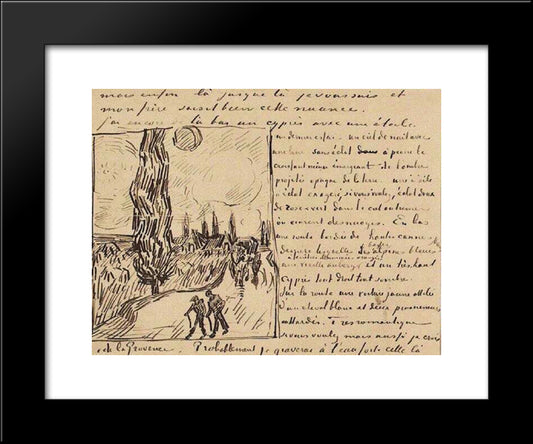 mais enfon là jusque là je vous suis et
mon père saisit bien cette nuance.
J'ai encore de là bas un cyprès avec une étoile
un dernier essai - un ciel de nuit avec
une lune sans éclat à peine le
croissant mince émergeant de l'ombre
projetée opaque de la terre - une étoile
à éclat exagéré, si vous voulez, éclat doux
de rose et vert dans le ciel outremer
où courent des nuages. En bas
une route bordée de hautes cannes
derrière lesquelles les basses alpines bleues
une vieille auberge et un très haut
cyprès tout droit tout sombre
Sur la route une voiture jaune attelée
d'un cheval blanc et deux promeneurs
attardés. Très romantique
si vous voulez mais aussi je crois
de la Provence. Probablement je graverai à l'eau forte celle là